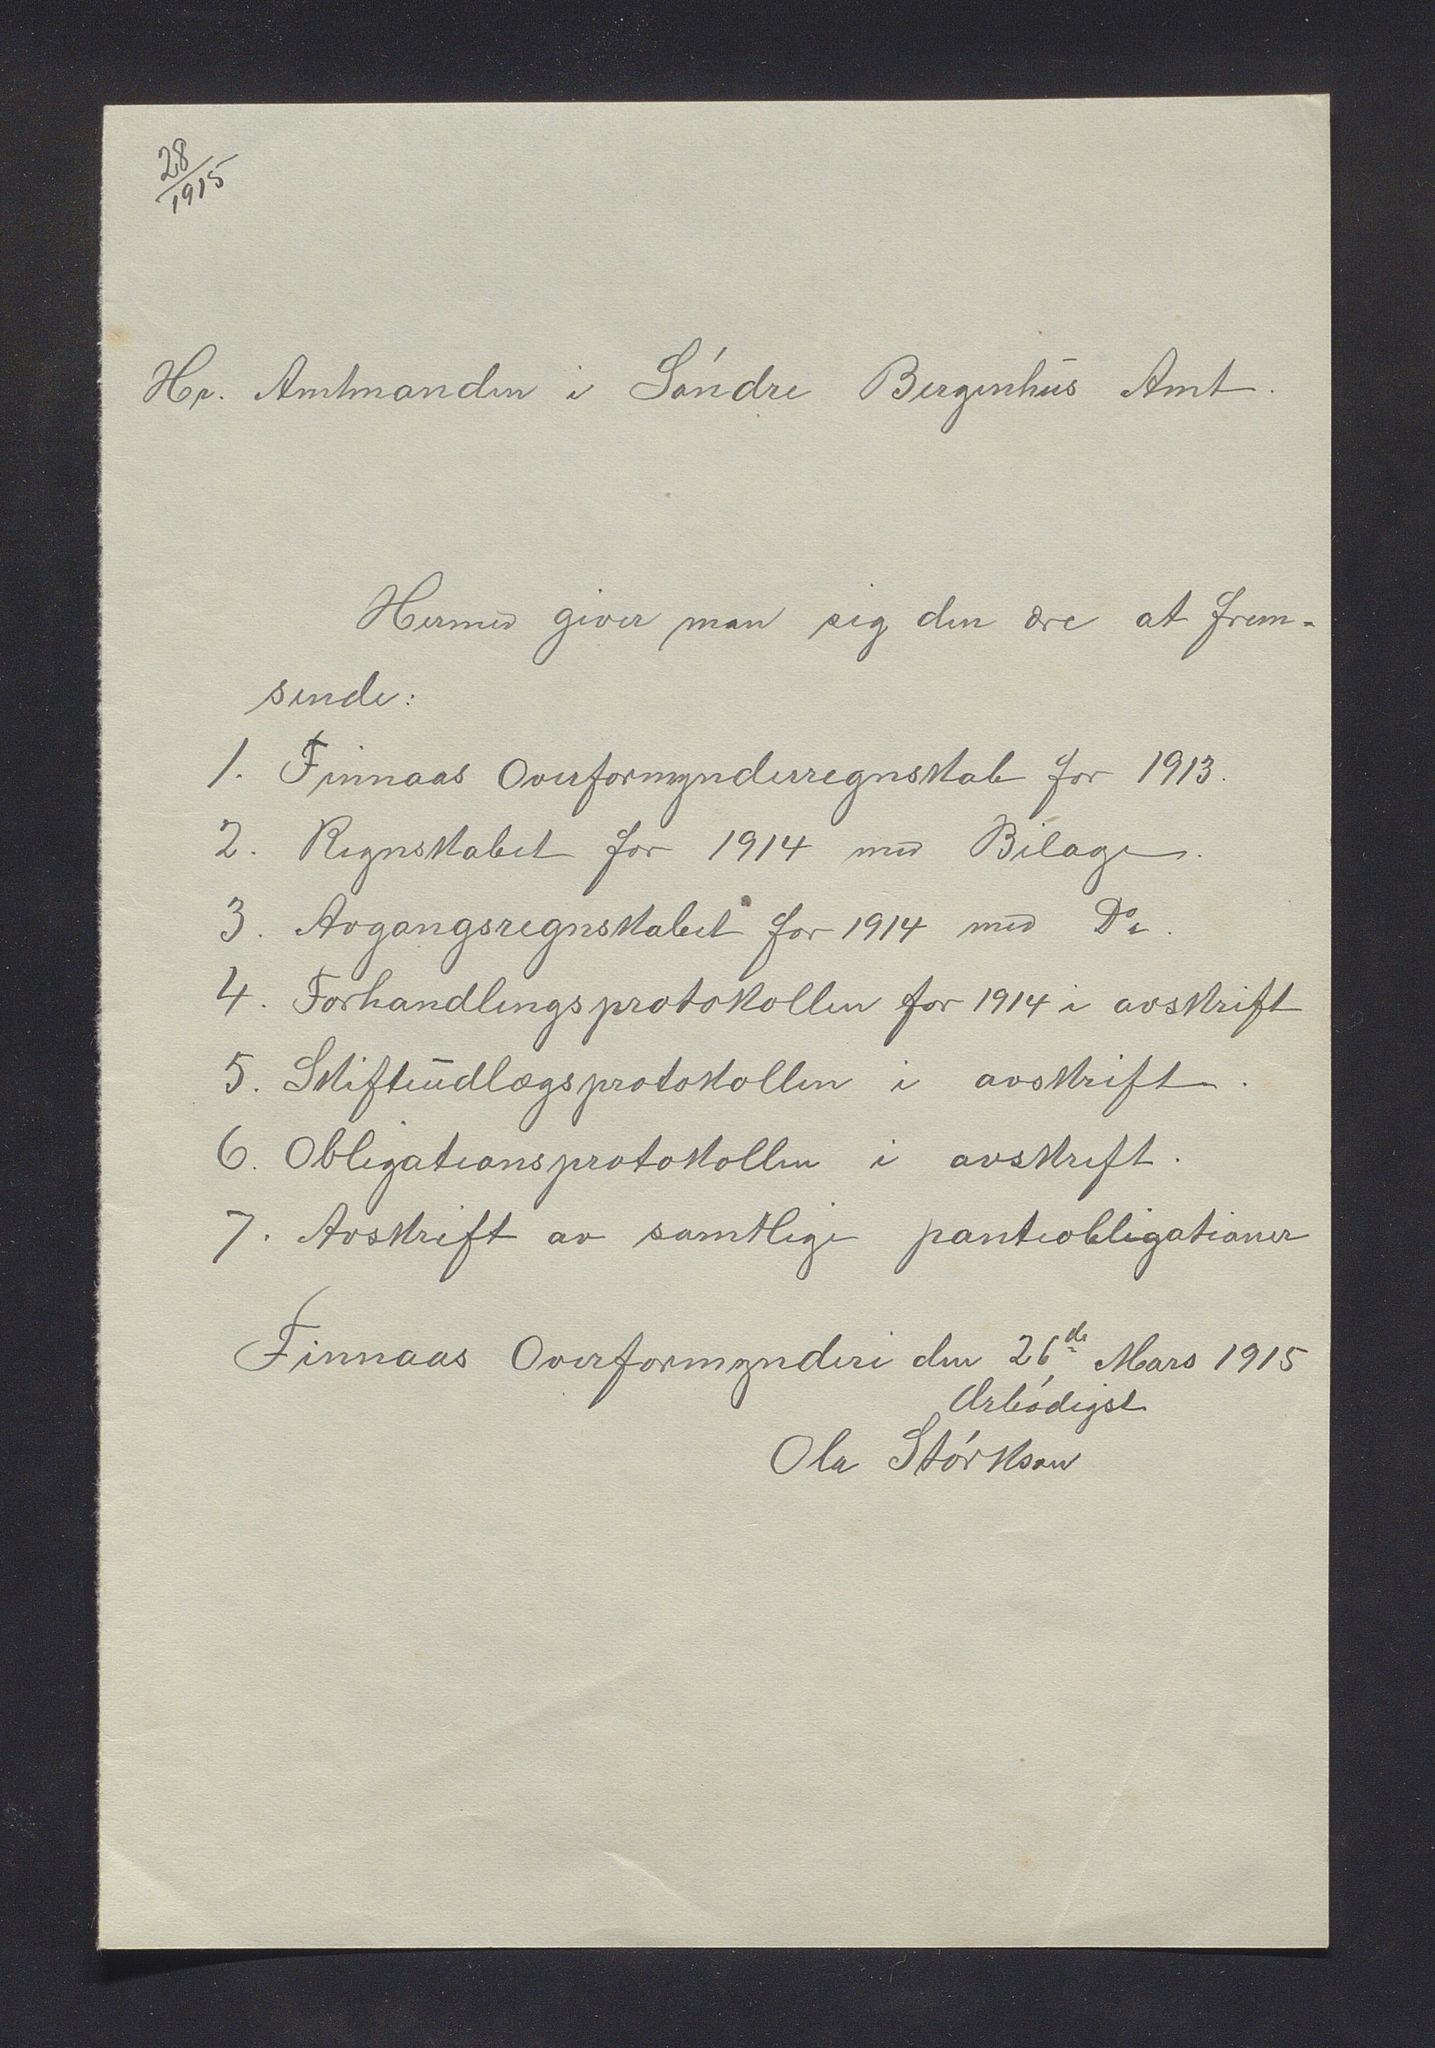 28
1915
Hr. Amtmanden i Söndre Bergenhus Amt.
Hermed giver man sig den ære at frem-
sende:
1. Finnaas Overformynderregnskab for 1913.
2. Regnskabet for 1914 med Bilage.
3. Avgangsregnskabet for 1914 med Do.
4. Forhandlingsprotokollen for 1914 i avskrift
5. Skifteudlægsprotokollen i avskrift.
6. Obligationsprotokollen i avskrift.
7. Avskrift av samtlige panteobligationer
Finnaas Overformynderi den 26de Mars 1915
Ærbödigst
Ola Störkson